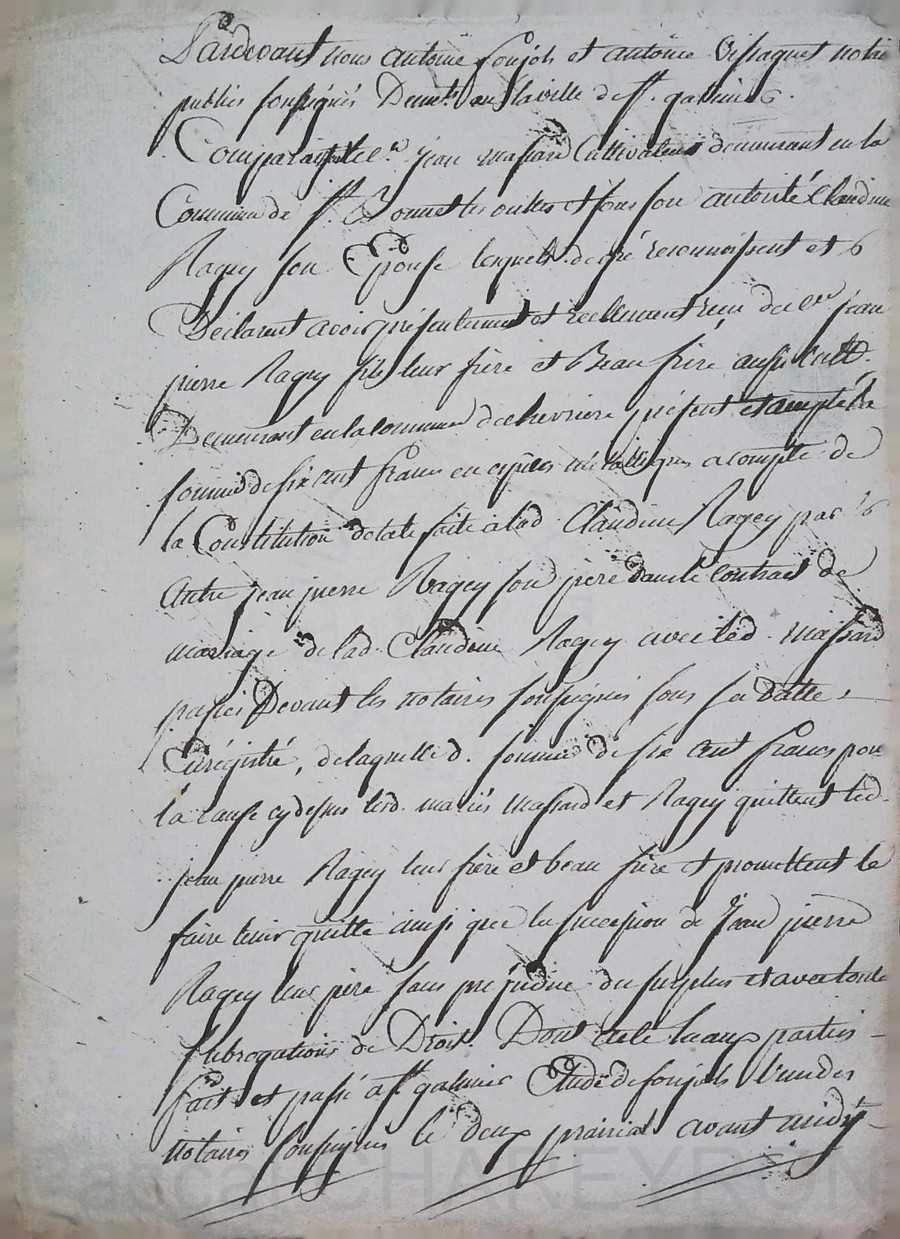 Pardevant nous antoine foujols et antoine Vissaguet notres
publics soussignés Demts en la ville de st. galmier
Comparaissent le cen. jean massard Cultivateur demeurant en la
Commune de st. Bonnet les oulles et sous son autorité Claudine
Ragey son Epouse lesquels de gré reconnoissent et
Déclarent avoir présentement et réellement reçu du cen jean
pierre Ragey fils leur frère et Beau frère aussi cultr.
Demeurant en la commune de chevriere présent et acceptant la
somme de six cent francs en espèces métalliques a compte de
la Constitution dotale faite à lad. Claudine Ragey par
Autre jean pierre Ragey son père dans le contract de
mariage de lad. Claudine Ragey avec led. massard
passé Devant les notaires soussignés sous sa datte,
Enrégistré, de laquelle d. somme de six cent francs pour
la cause cy dessus lesd. mariés massard et Ragey quittent led.
jean pierre Ragey leur frère et beau frère et promettent le
faire tenir quitte ainsi que la succession de Jean pierre
Ragey leur père sans préjudice du surplus et avec toute
subrogations de Droit. Dont acte lu aux parties
fait et passé à st galmier Etude de foujols l'un des
notaires soussignés le deux prairial avant midy
CHAREYRON